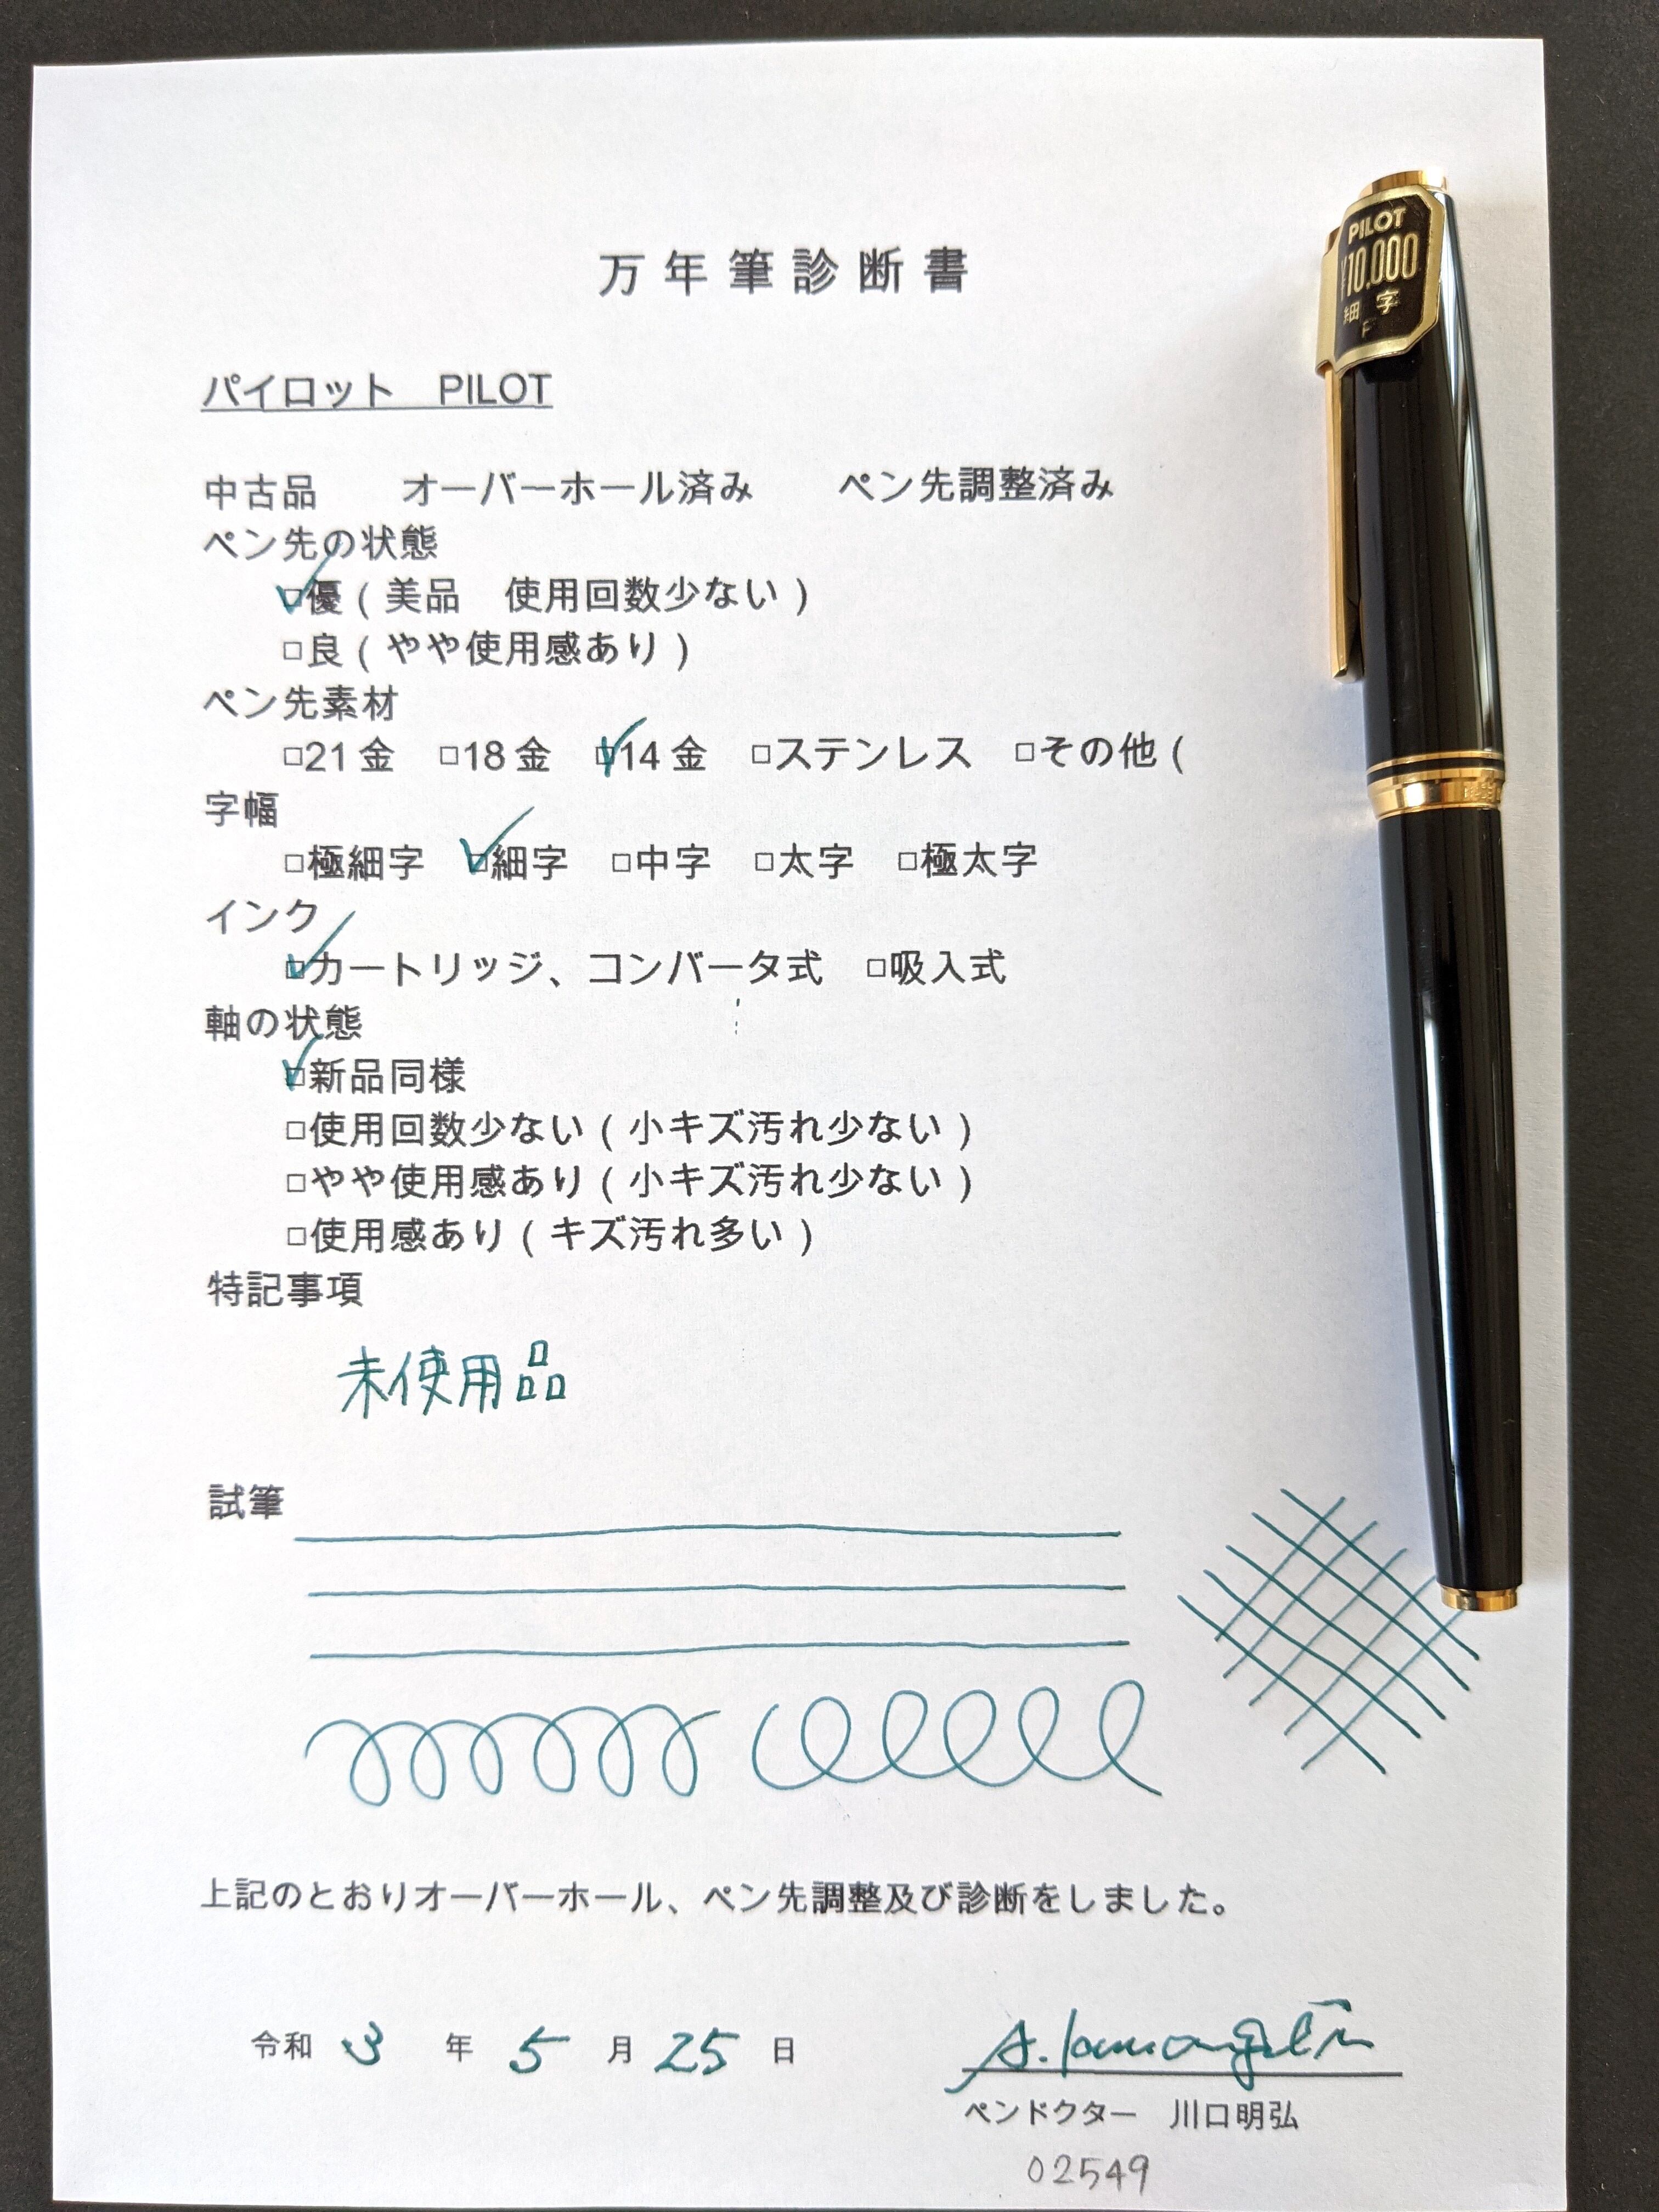 万年筆診断書
PILOT
¥10,000
細字
F
パイロット　PILOT
中古品　　オーバーホール済み　　ペン先調整済み
ペン先の状態
☑優（美品　使用回数少ない）
□良（やや使用感あり）
ペン先素材
□21金　□18金　☑14金　□ステンレス　□その他（
字幅
□極細字　☑細字　□中字　□太字　□極太字
インク
☑カートリッジ、コンバータ式　□吸入式
軸の状態
☑新品同様
□使用回数少ない（小キズ汚れ少ない）
□やや使用感あり（小キズ汚れ少ない）
□使用感あり（キズ汚れ多い）
特記事項
未使用品
試筆
上記のとおりオーバーホール、ペン先調整及び診断をしました。
令和 3 年 5 月 25 日
ペンドクター　川口明弘
02549